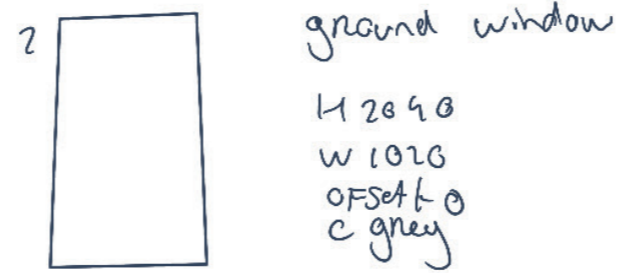 2
ground window
H 2040
W 1020
OFSett 0
C grey